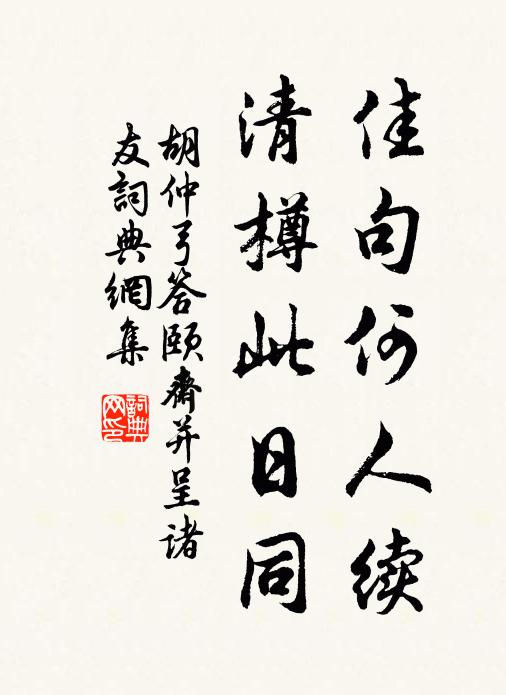 佳句何人续
清樽此日同
胡仲弓答颐齋并呈诸
友詞典網集
詞典
网印